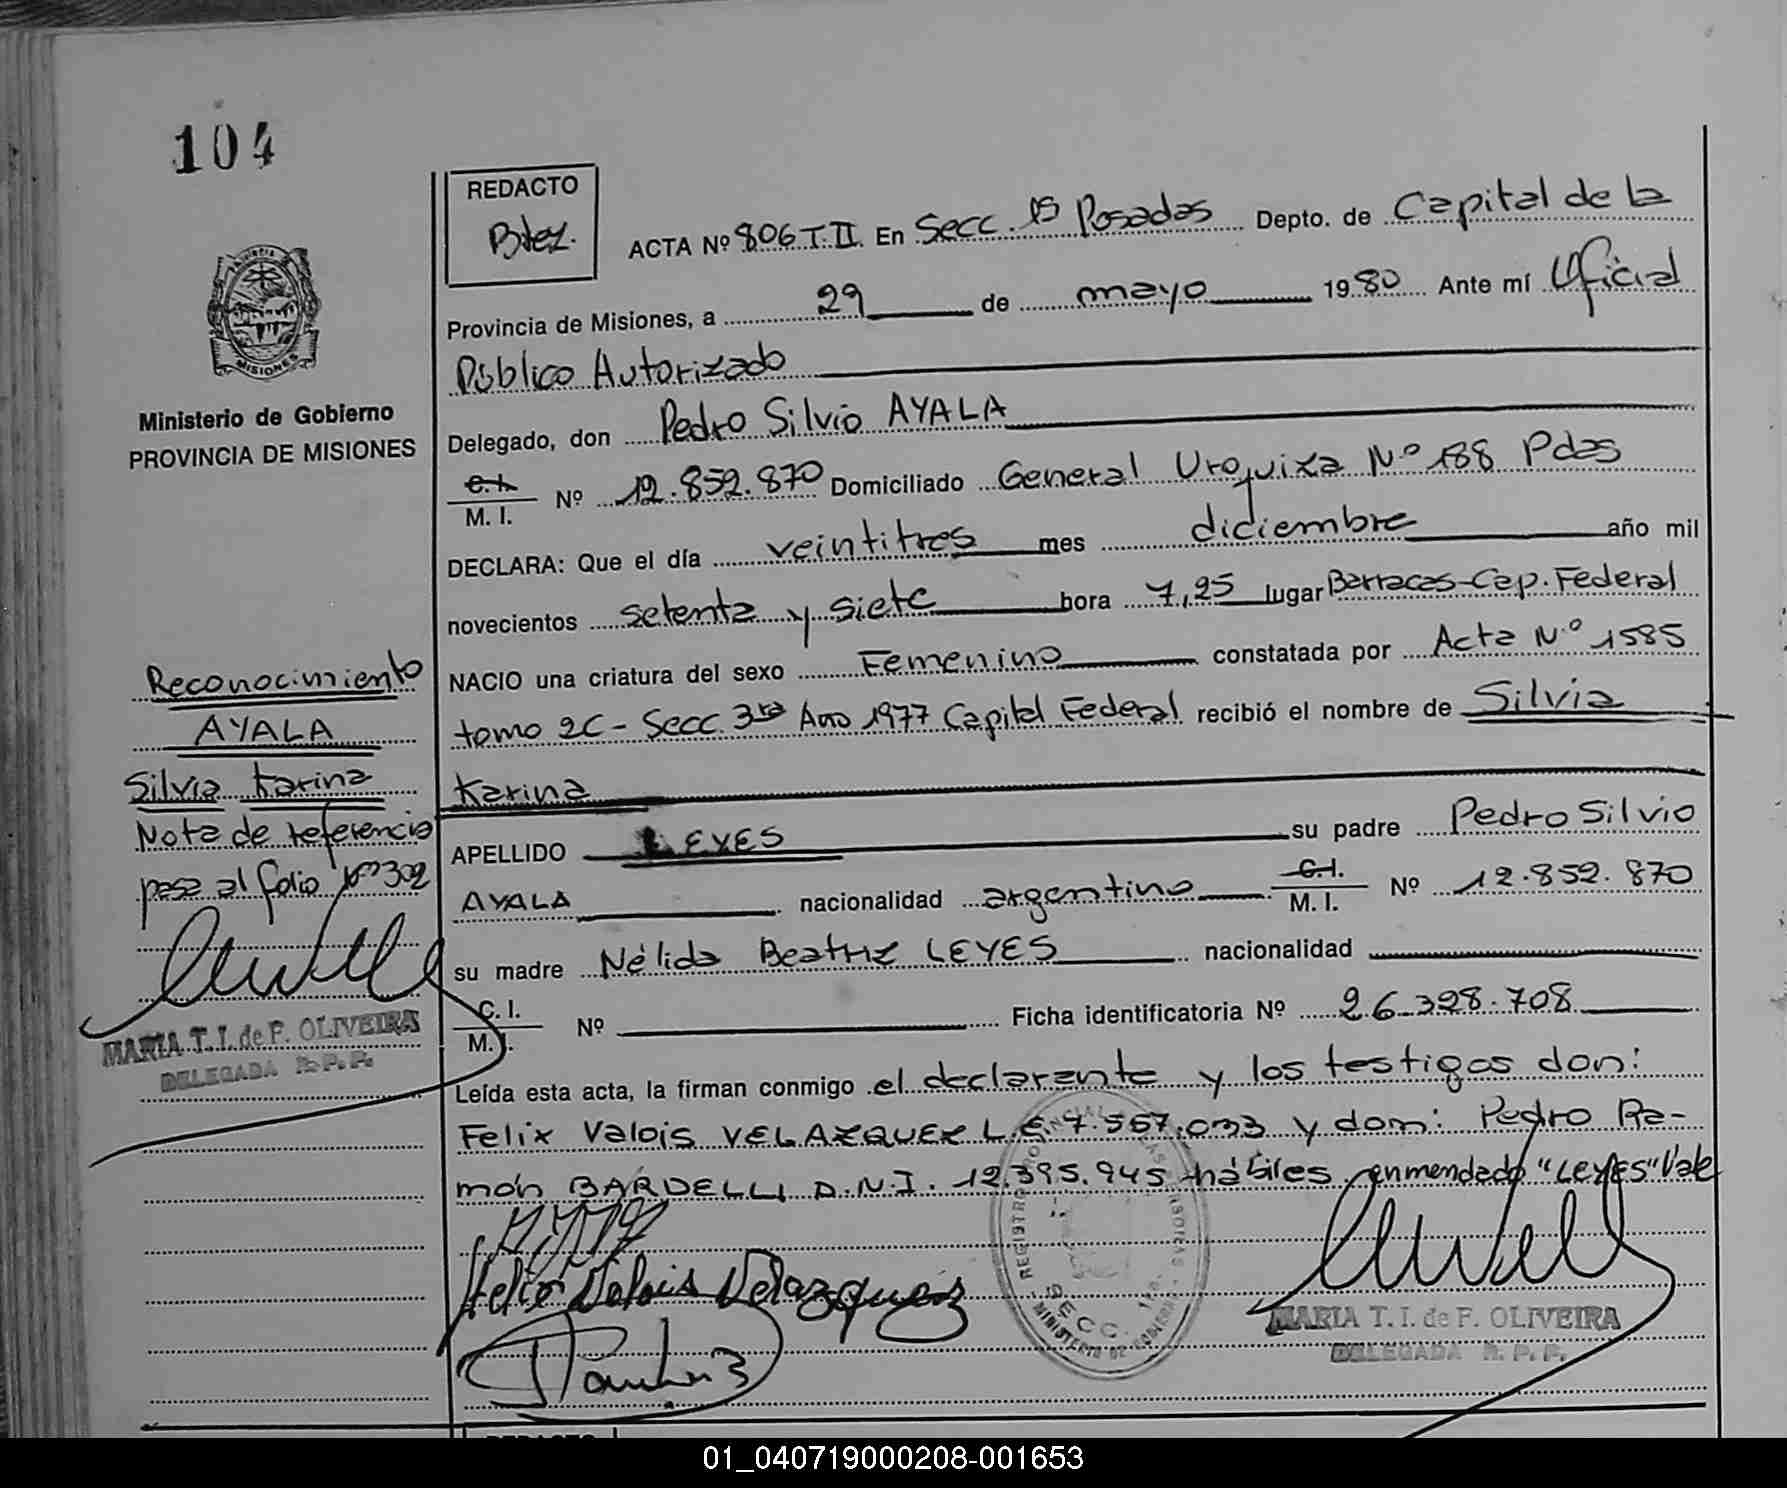 104
REDACTO
Btez.
ACTA Nº 806 T.II. En Secc. 1ª Posadas Depto. de Capital de la
Provincia de Misiones, a 29 de mayo 1980 Ante mí Oficial
Público Autorizado
Delegado, don Pedro Silvio AYALA
C.I.
M. I. Nº 12.852.870 Domiciliado General Urquiza Nº 188 Pdas
DECLARA: Que el día veintitres mes diciembre año mil
novecientos setenta y siete hora 7,25 lugar Barracas-Cap. Federal
NACIO una criatura del sexo Femenino constatada por Acta Nº 1585
tomo 2C - Secc. 3ra Año 1977 Capital Federal recibió el nombre de Silvia
Karina
APELLIDO LEYES su padre Pedro Silvio
AYALA nacionalidad argentino C.I.
M. I. Nº 12.852.870
su madre Nélida Beatriz LEYES nacionalidad
C. I.
M. I. Nº Ficha identificatoria Nº 26.328.708
Leída esta acta, la firman conmigo el declarante y los testigos don:
Felix Valois VELAZQUEZ L.E. 7.557.033 y don: Pedro Ra-
món BARDELLI D.N.I. 12.395.945 hábiles enmendado "LEYES" Vale
Felix Valois Velazquez
MARIA T. I. de F. OLIVEIRA
DELEGADA R. P. P.
REGISTRO PROVINCIAL DE LAS PERSONAS
SECC. 1ra.
MINISTERIO DE GOBIERNO
MISIONES
Ministerio de Gobierno
PROVINCIA DE MISIONES
Reconocimiento
AYALA
Silvia Karina
Nota de referencia
pasa al folio Nº 302
MARIA T. I. de F. OLIVEIRA
DELEGADA R. P. P.
REDACTO
01_040719000208-001653